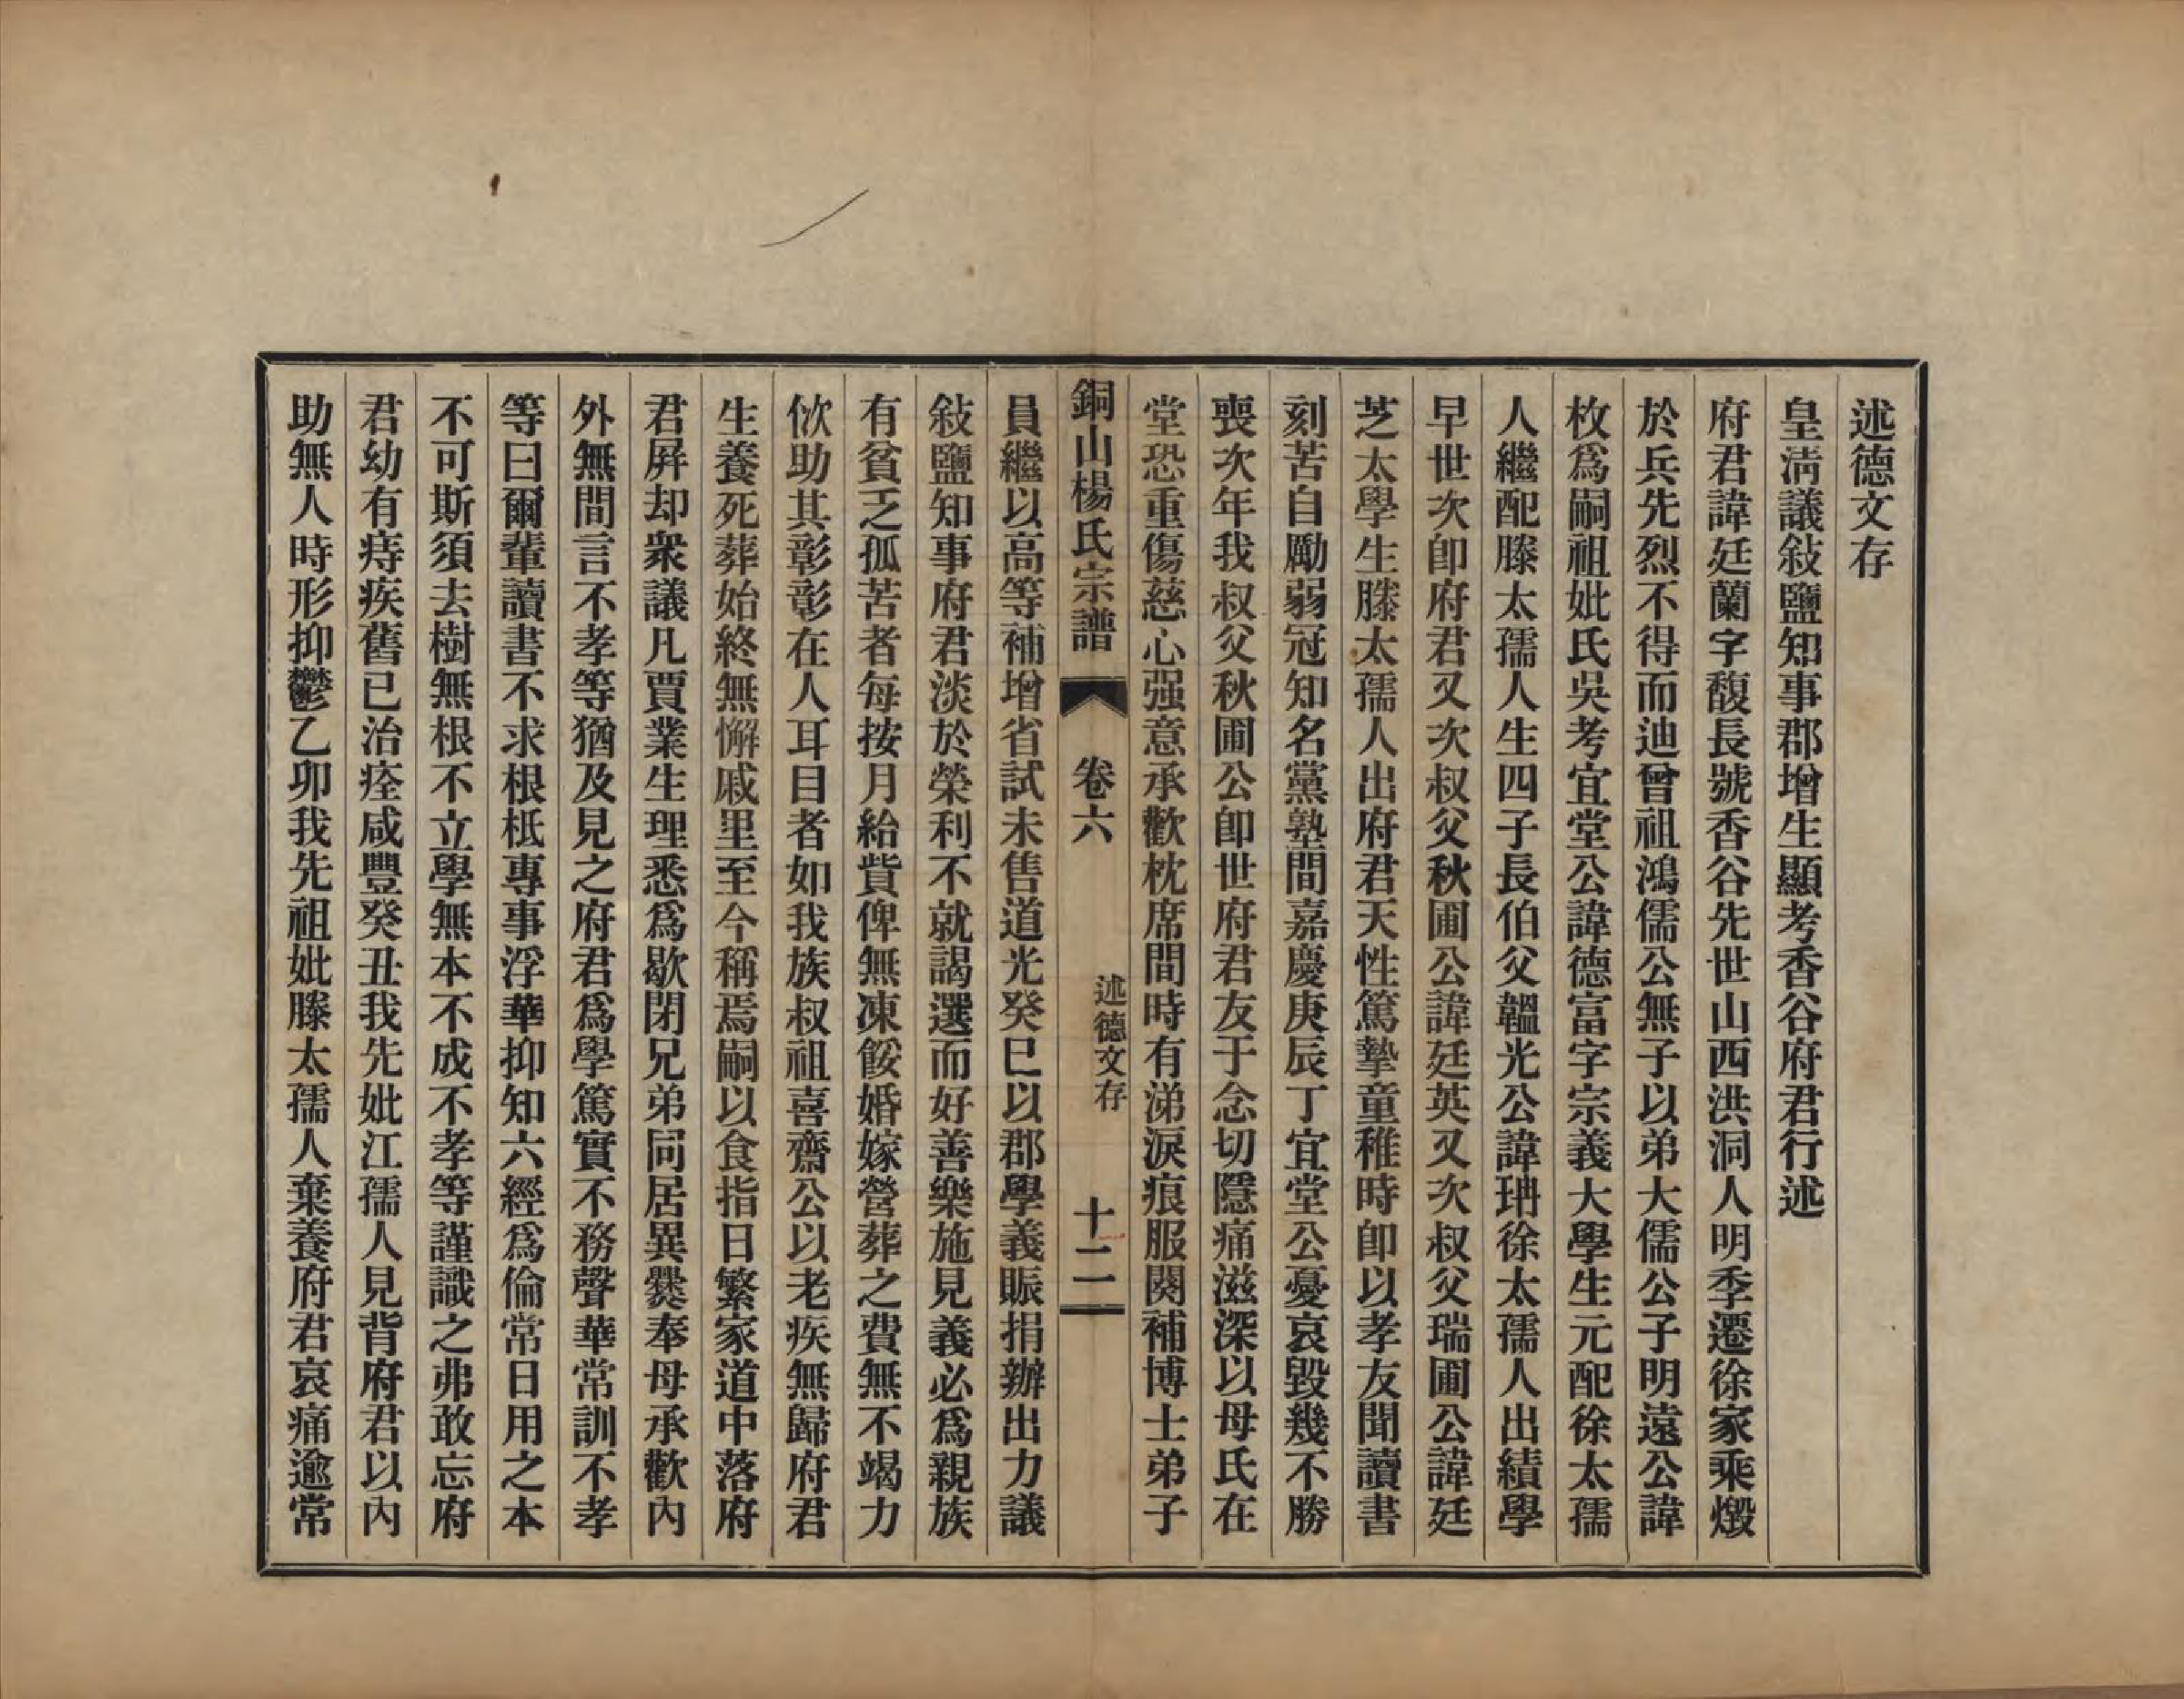 述德文存
皇淸議敍鹽知事郡增生顯考香谷府君行述
府君諱廷蘭字馥長號香谷先世山西洪洞人明季遷徐家乘燬
於兵先烈不得而迪曾祖鴻儒公無子以弟大儒公子明遠公諱
枚爲嗣祖妣氏吳考宜堂公諱德富字宗義大學生元配徐太孺
人繼配滕太孺人生四子長伯父韞光公諱珃徐太孺人出績學
早世次卽府君又次叔父秋圃公諱廷英又次叔父瑞圃公諱廷
芝太學生滕太孺人出府君天性篤摯童稚時卽以孝友聞讀書
刻苦自勵弱冠知名黨塾間嘉慶庚辰丁宜堂公憂哀毀幾不勝
喪次年我叔父秋圃公卽世府君友于念切隱痛滋深以母氏在
堂恐重傷慈心强意承歡枕席間時有涕淚痕服闋補博士弟子
銅山楊氏宗譜 卷六 述德文存 十二
員繼以高等補增省試未售道光癸巳以郡學義賑捐辦出力議
敍鹽知事府君淡於榮利不就謁選而好善樂施見義必爲親族
有貧乏孤苦者每按月給貲俾無凍餒婚嫁營葬之費無不竭力
佽助其彰彰在人耳目者如我族叔祖喜齋公以老疾無歸府君
生養死葬始終無懈戚里至今稱焉嗣以食指日繁家道中落府
君屛却衆議凡賈業生理悉爲歇閉兄弟同居異爨奉母承歡內
外無間言不孝等猶及見之府君爲學篤實不務聲華常訓不孝
等曰爾輩讀書不求根柢專事浮華抑知六經爲倫常日用之本
不可斯須去樹無根不立學無本不成不孝等謹識之弗敢忘府
君幼有痔疾舊已治痊咸豐癸丑我先妣江孺人見背府君以內
助無人時形抑鬱乙卯我先祖妣滕太孺人棄養府君哀痛逾常